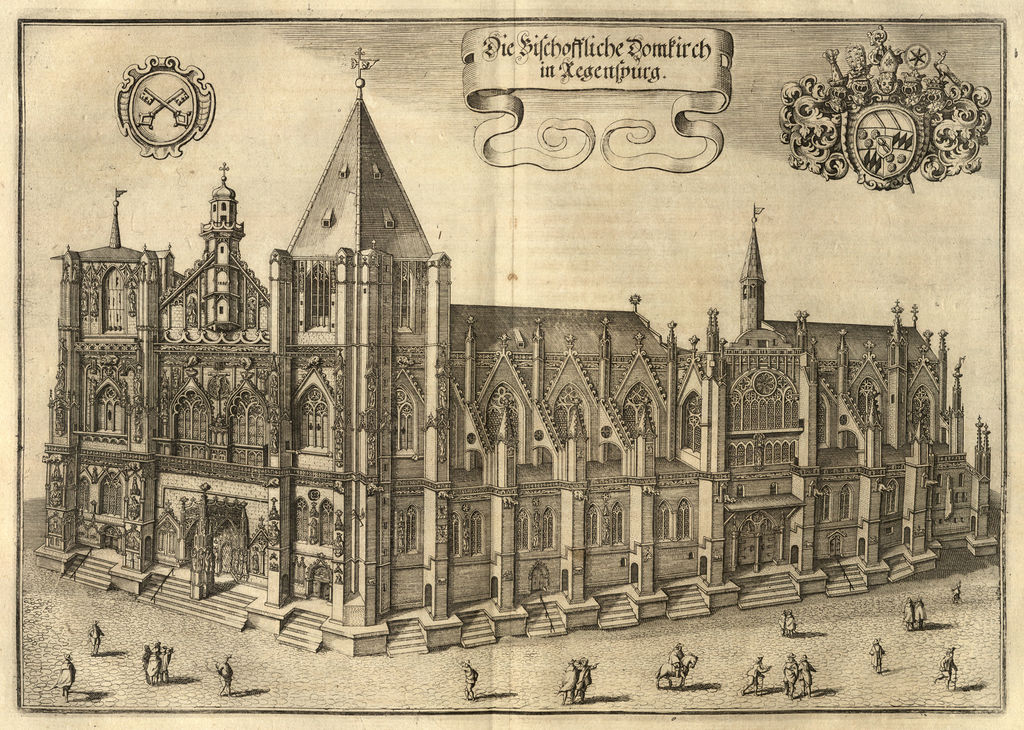 Die Bischoffliche Domkirch
in Regenspurg.